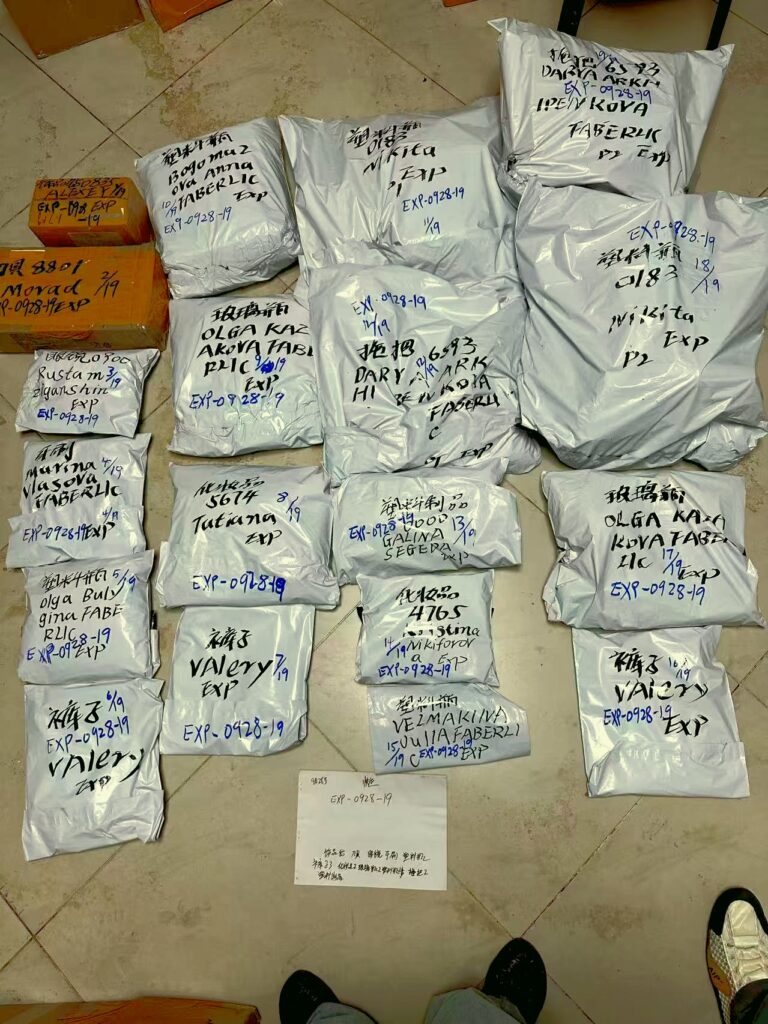 0835
ALEXEY 1/19
EXP-0928 EXP
-19
8801
Morad 2/19
P-0928-19EXP
Rustam 3/19
ziganshin
EXP
EXP-0928-19
牙刷
Marina 4/19
Vlasova
FABERLIC
4/19
EXP-0928-19 EXP
塑料瓶 5/19
Olga Buly
gina FABE
RLIC
EXP-0928-19
EXP
裤子 6/19
EXP-0928-19
VAlery
EXP
塑料瓶
Bogomaz
ova Anna
10/19 FABERLIC
EXP-0928-19 EXP
玻璃瓶
OLGA KAZ
AKOVA FAB
RLIC 9/19
EXP
EXP-0928-19
化妆品
5674 8/19
Tatiana
EXP
EXP-0928-19
裤子
VAlery 7/19
EXP
EXP-0928-19
塑料瓶
0183
Nikita
EXP
P1
EXP-0928-19
11/19
EXP-0928-19
12/19
拖把 6593
12/19
DARY ARK
HI PENKOVA
FABERLI
C
P1 EXP
塑料制品
EXP-0928-19
13/19
GALINA
SEGEDA EXP
化妆品
4765
Kristina
14/19 Nikiforov
a EXP
EXP-0928-19
塑料瓶
VEZMAKINA
Julia FABERLI
15/19 C EXP-0928-19
EXP
拖把 6593
DARYA ARKH
EXP-0928-19
IPENKOVA
FABERLIC
P2 EXP
EXP-0928-19
塑料瓶 18/19
0183
Nikita
P2 EXP
玻璃瓶
OLGA KAZA
KOVA FABE
RLIC 17/19
EXP
EXP-0928-19
裤子 16/19
VAlery
EXP-0928-19
EXP
EXP-0928-19